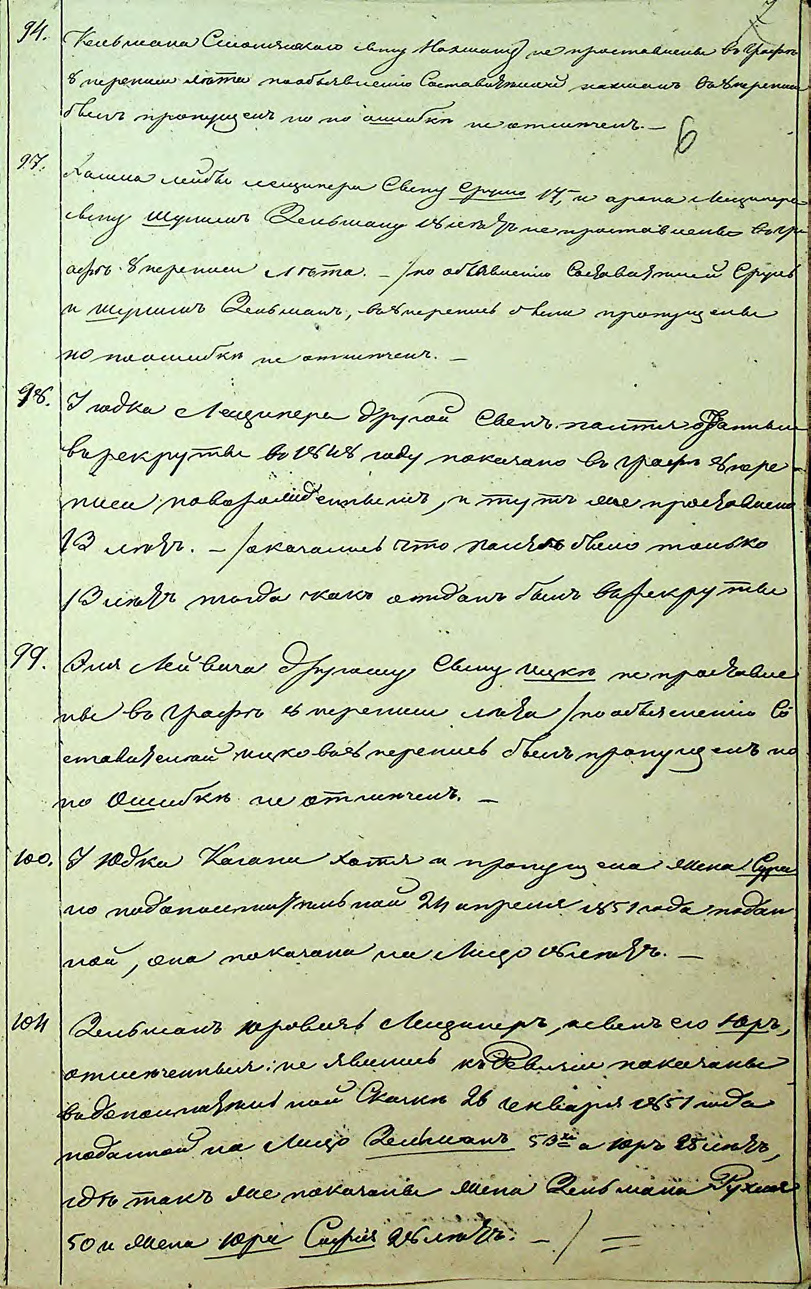 94. Кельмана Смолянскаго сыну Нахману не проставлены въ графѣ
8 переписи лѣта по объявленію Составляющей нахманъ въ 8 перепись
былъ пропущенъ но по ошибкѣ не отмѣченъ. —
6
97. Хаима Лейбы Лещинера Сыну Срулю 17, и арона Лещинера
сыну Шулиму Зельману 18 лѣтъ не проставлены въ гр
афѣ 8 переписи лѣта. — / по объявленію Составляющей Сруль
и Шулимъ Зельманъ, въ 8 перепись были пропущены
но по ошибкѣ не отмѣчен. —
98. У юдка Лещинера другой Сынъ отданный
въ рекруты въ 1848 году показано въ графѣ 8 пере-
писи новорожденнымъ, и тутъ же проставлено
13 лѣтъ. — / оказалось что было только
13 лѣтъ тогда какъ отданъ былъ въ рекруты
99. Эля Лейвича другому Сыну ицкѣ не проставле
ны въ графѣ 8 переписи лѣта / по объясненію Со
ставляющей ицко въ 8 перепись былъ пропущенъ но
по Ошибкѣ не отмѣченъ. —
100. У Юдка Кагана хотя и пропущена жена Сура
но по дополнительной 24 апреля 1851 года подан
ной, она показана на Лицо 18 лѣтъ. —
104 Зельманъ юровичъ Лещинеръ, и сынъ его Юръ,
отмеченные: не явились къ Ревизіи показаны
въ дополнительной Сказкѣ 26 генваря 1851 года
поданной на Лицо Зельманъ 53хъ а юръ 28 лѣтъ,
гдѣ такъ же показаны жена Зельмана Рухля
50 и жена юра Софія 26 лѣтъ. — / =